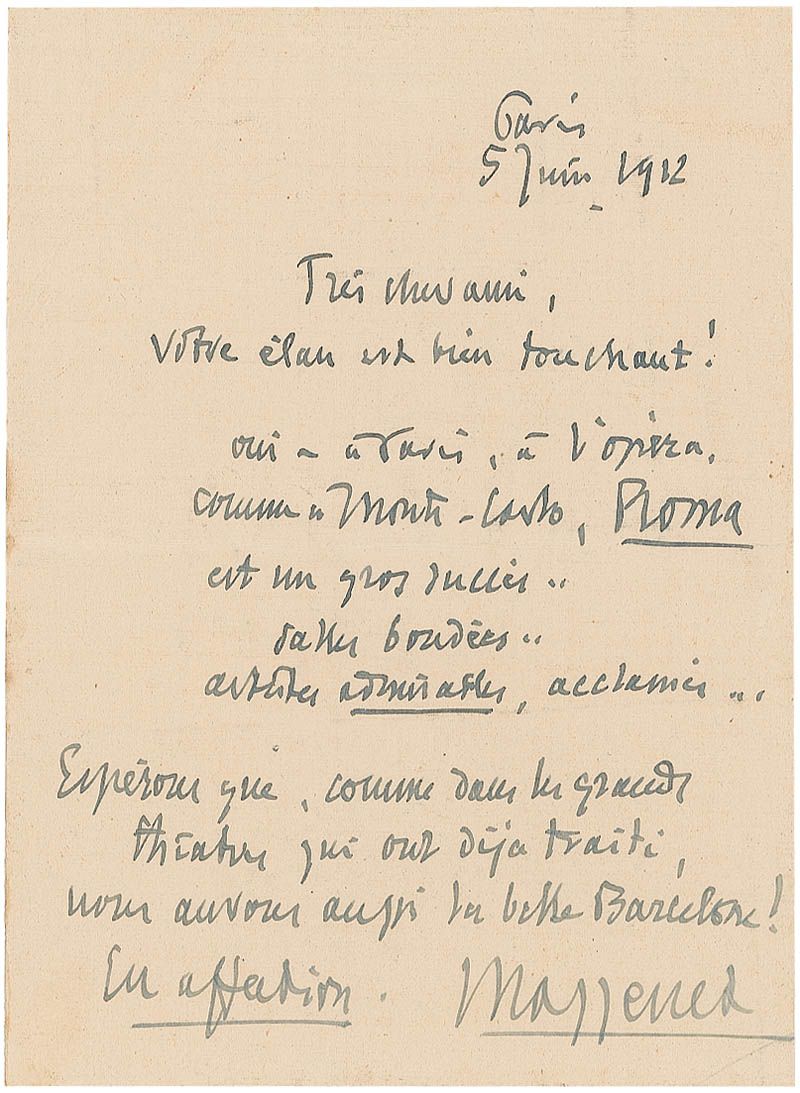 Paris
5 Juin 1912
Très cher ami,
votre élan est bien touchant!
oui - à Paris, à l'opéra,
comme à Monte-Carlo, Roma
est un gros succès..
salles bondées..
artistes admirables, acclamés...
Espérons que, comme dans les grands
théâtres qui ont déjà traité,
nous aurons aussi la belle Barcelone!
En affection.
Massenet